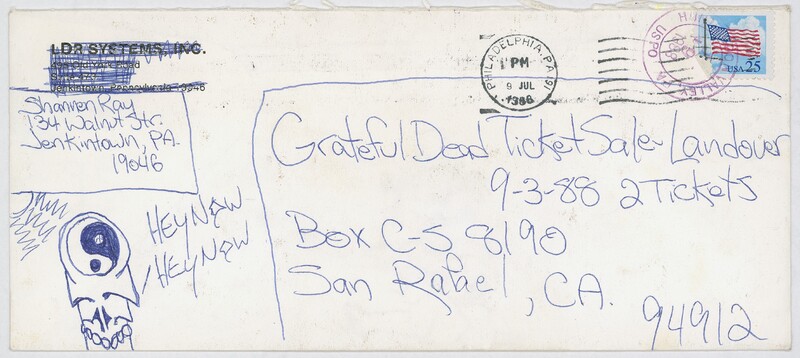 LDR SYSTEMS, INC.
Jenkintown, Pennsylvania 19046
Shannen Ray
134 Walnut Str.
Jenkintown, PA.
19046
HEY NOW
HEY NOW
PHILADELPHIA, PA 191
PM
9 JUL
1988
USPO
USA 25
Grateful Dead Ticket Sale - Landover
9-3-88 2 Tickets
Box C-S 8190
San Rafael, CA.
94912